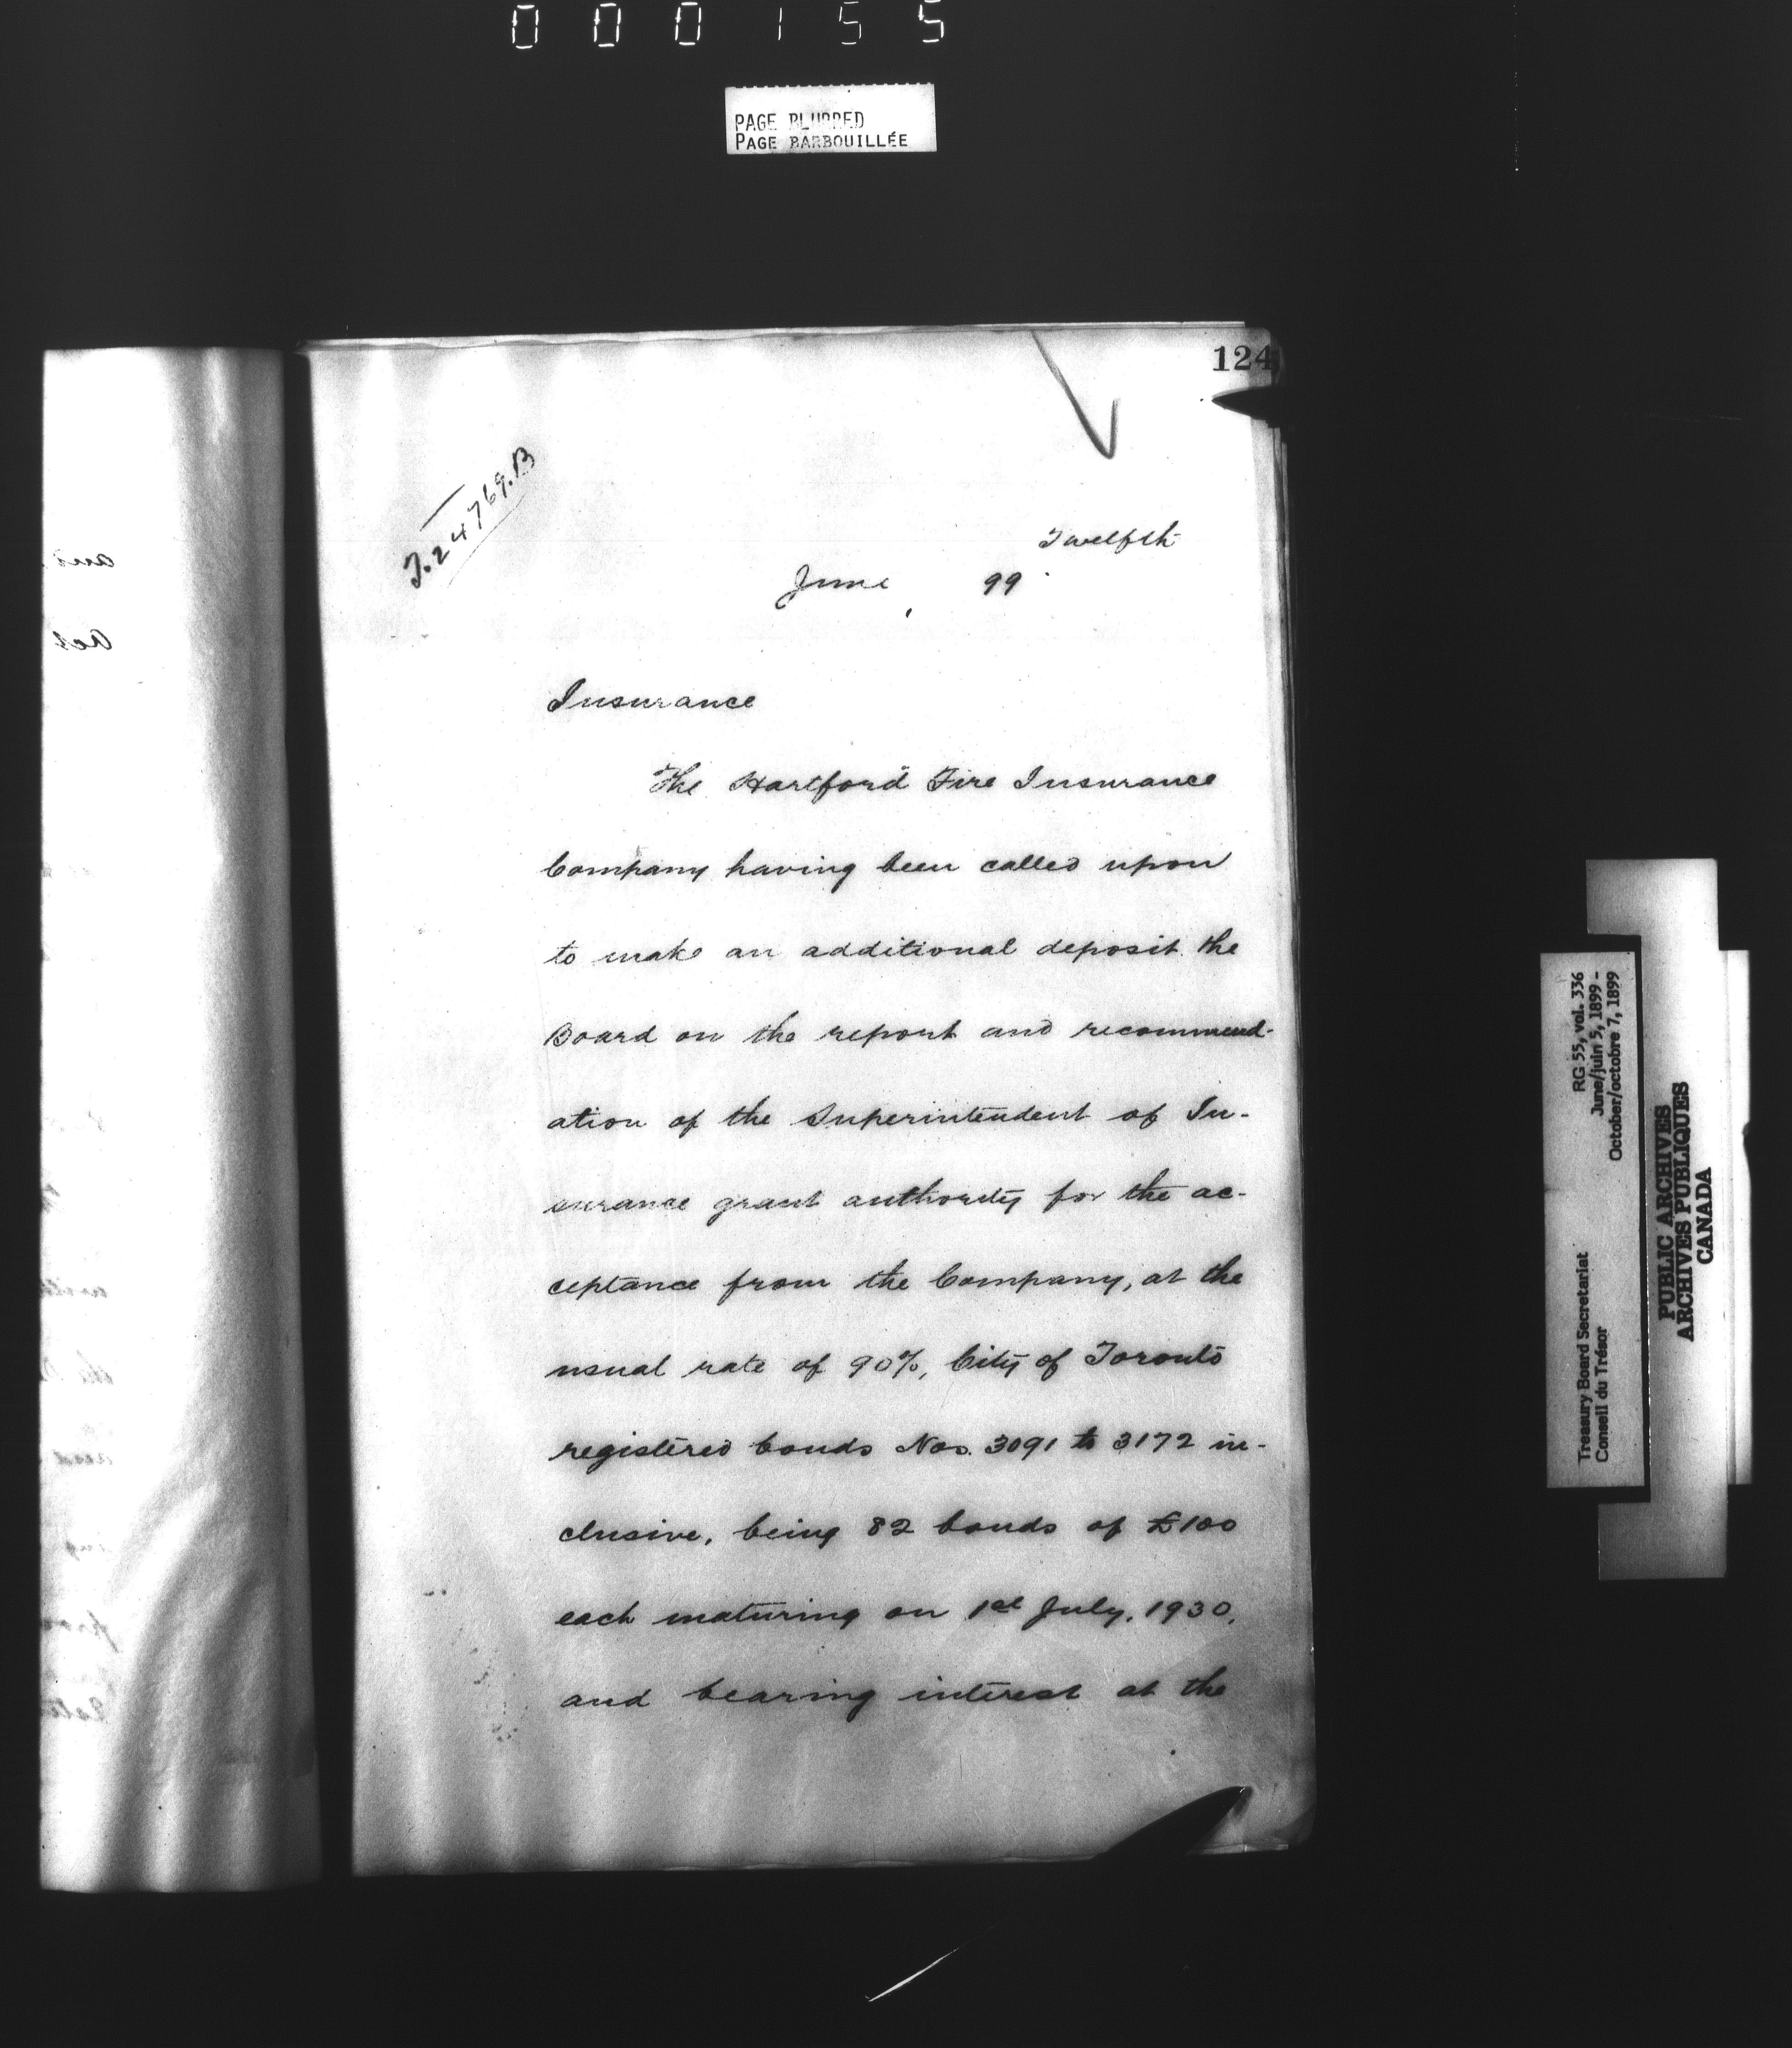 000155
PAGE BLURRED
PAGE BARBOUILLÉE
124
T.24769.B
Twelfth
June 99
Insurance
The Hartford Fire Insurance
Company having been called upon
to make an additional deposit the
Board on the report and recommend-
ation of the Superintendent of In-
surance grant authority for the ac-
ceptance from the Company, at the
usual rate of 90%, City of Toronto
registered bonds Nos. 3091 to 3172 in-
clusive, being 82 bonds of £100
each maturing on 1st July, 1930,
and bearing interest at the
Treasury Board Secretariat
Conseil du Trésor
RG 55, vol. 336
June/juin 5, 1899 -
October/octobre 7, 1899
PUBLIC ARCHIVES
ARCHIVES PUBLIQUES
CANADA